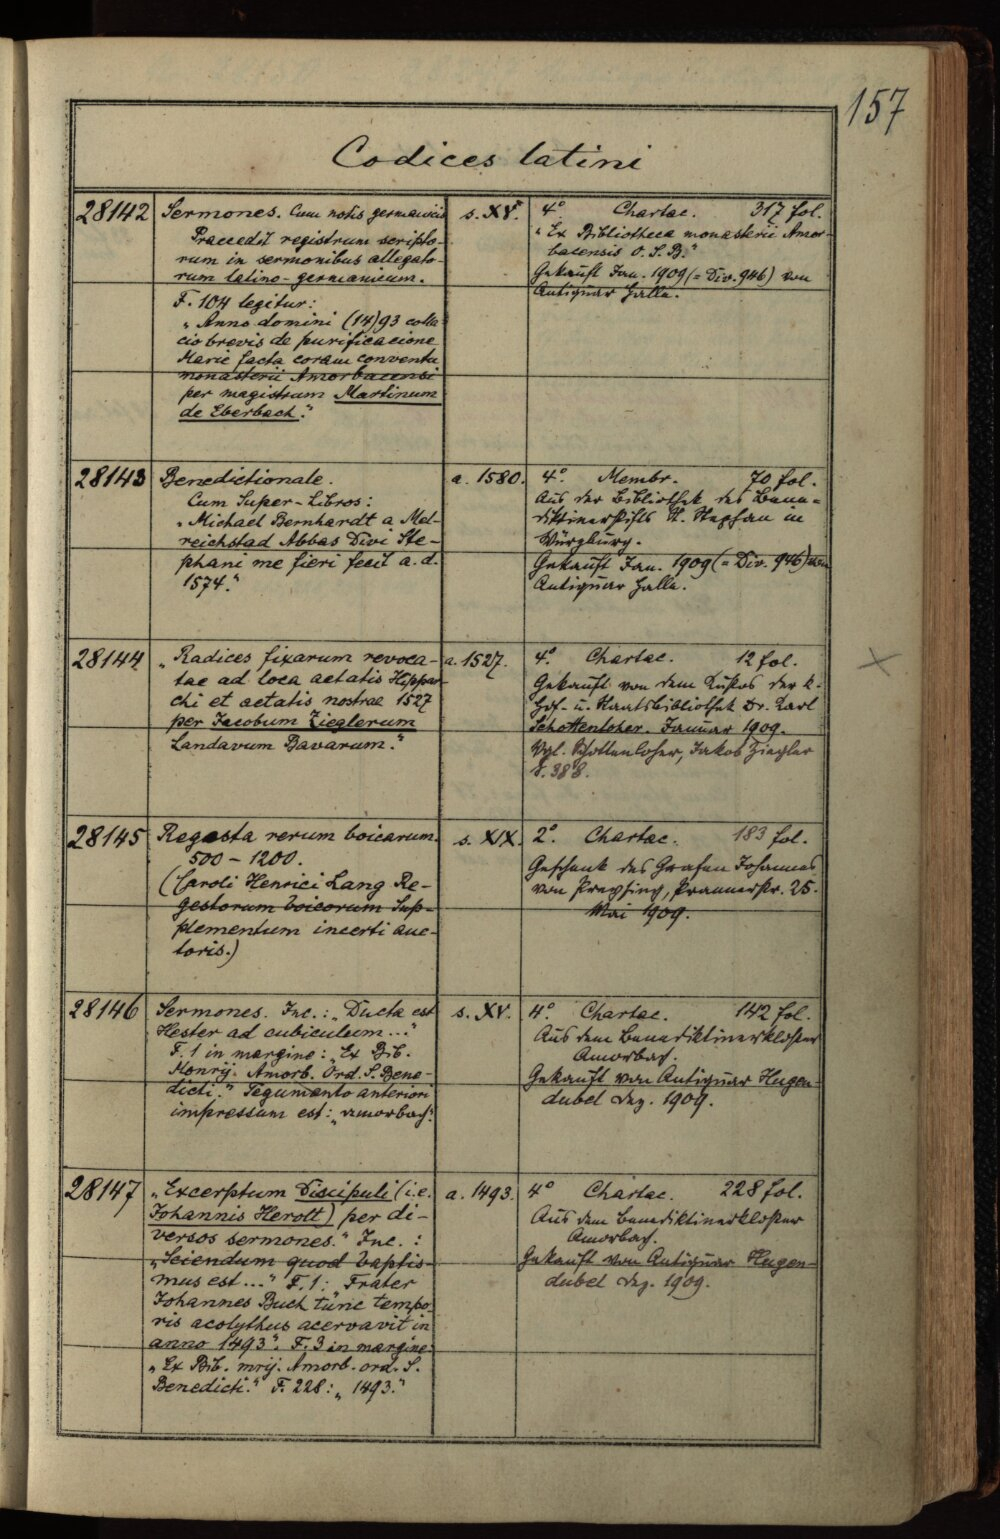 157
Codices latini
28142
Sermones. Cum notis germanicis
Praecedit registrum scripto-
rum in sermonibus allegato-
rum latino-germanicum.
F. 104 legitur:
„Anno domini (14)93 colla
cio brevis de purificacione
Marie facta coram conventu
monasterii Amorbacensi
per magistrum Martinum
de Eberbach."
s. XV.
4° Chartac. 317 fol.
„Ex Bibliotheca monasterii Amor-
bacensis O. S. B."
Gekauft Jan. 1909 (= Div. 946) von
Antiquar Halle.
28143
Benedictionale.
Cum Super-Libros:
„Michael Bernhardt a Mel-
reichstad Abbas Divi Ste-
phani me fieri fecit a. d.
1574."
a. 1580.
4°. Membr. 70 fol.
Aus der Bibliothek des Bene-
diktinerstifts St. Stephan in
Würzburg.
Gekauft Jan. 1909 (= Div. 946) von
Antiquar Halle.
28144
„Radices fixarum revoca-
tae ad loca aetatis Hippar-
chi et aetatis nostrae 1527
per Jacobum Zieglerum
Landavum Bavarum."
a. 1527.
4°. Chartac. 12 fol.
Gekauft von dem Kustos der K.
Hof- u. Staatsbibliothek Dr. Karl
Schottenloher. Januar 1909.
Vgl. Schottenloher, Jakob Ziegler
S. 388.
×
28145
Regesta rerum boicarum.
500 - 1200.
(Caroli Henrici Lang Re-
gestorum boicorum Sup-
plementum incerti auc-
toris.)
s. XIX.
2°. Chartac. 183 fol.
Geschenk des Grafen Johannes
von Preysing, Prannerstr. 25.
Mai 1909.
28146
Sermones. Inc.: „Ducta est
Hester ad cubiculum ..."
F. 1 in margine: „Ex Bib.
Monrij. Amorb. Ord. S. Bene-
dicti." Tegumento anteriori
impressum est: „Amorbach."
s. XV.
4°. Chartac. 142 fol.
Aus dem Benediktinerkloster
Amorbach.
Gekauft von Antiquar Hugen-
dubel Dez. 1909.
28147
„Excerptum Discipuli (i.e.
Johannis Herolt) per di-
versos sermones." Inc.:
„Sciendum quod baptis-
mus est ..." F. 1: „Frater
Johannes Buch tunc tempo-
ris acolythus acervavit in
anno 1493". F. 3 in margine:
„Ex Bib. mrij. Amorb. ord. S.
Benedicti." F. 228: „1493."
a. 1493.
4° Chartac. 228 fol.
Aus dem Benediktinerkloster
Amorbach.
Gekauft von Antiquar Hugen-
dubel Dez. 1909.